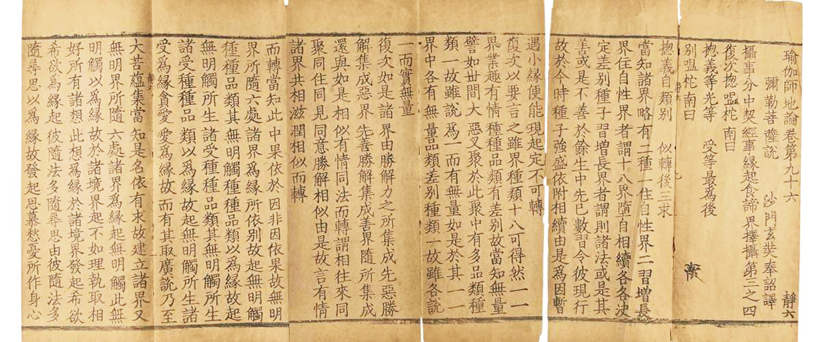 瑜伽師地論卷第九十六　靜六
彌勒菩薩說　沙門玄奘奉詔譯
攝事分中契經事緣起食諦界擇攝第三之四
復次揔嗢柁南曰
揔義等光等　受等最為後
別嗢柁南曰
揔義自類別　似轉後三求
當知諸界略有二種一住自性界二習增長
界住自性界者謂十八界墮自相續各各決
定差別種子習增長界者謂則諸法或是其
善或是不善於餘生中先已數習令彼現行
故於今時種子強盛依附相續由是為因暫
遇小緣便能現起定不可轉
復次以要言之雖界種類十八可得然一一
界業趣有情種種品類有差別故當知無量
譬如世間大惡叉聚於此聚中有多品類種
類一故雖說為一而有無量如是於其一一
界中各有無量品類差別種類一故雖各說
一而實無量
復次如是諸界由勝解力之所集成先惡勝
解集成惡界先善勝解集成善界隨所集成
還與如是相似有情同法而轉謂相往來同
聚同住同見同意勝解相似由是故言有情
諸界共相滋潤相似而轉
而轉當知此中果依於因非因依果故無明
界所隨六處諸界為緣所依別故起無明觸
種種品類其無明觸種種品類以為緣故起
無明觸所生諸受種種品類其無明觸所生
諸受種種品類以為緣故起無明觸所生諸
受為緣貪愛愛為緣故而有其取廣說乃至
大苦蘊集當知是名依有求故建立諸界又
無明界所隨六處諸界為緣起無明觸此無
明觸以為緣故於諸境界起不如理執取相
好所有諸想此想為緣於諸境界發起希欲
希欲為緣起彼隨法多隨尋思由彼隨法多
隨尋思以為緣故發起思慕愁憂所作身心